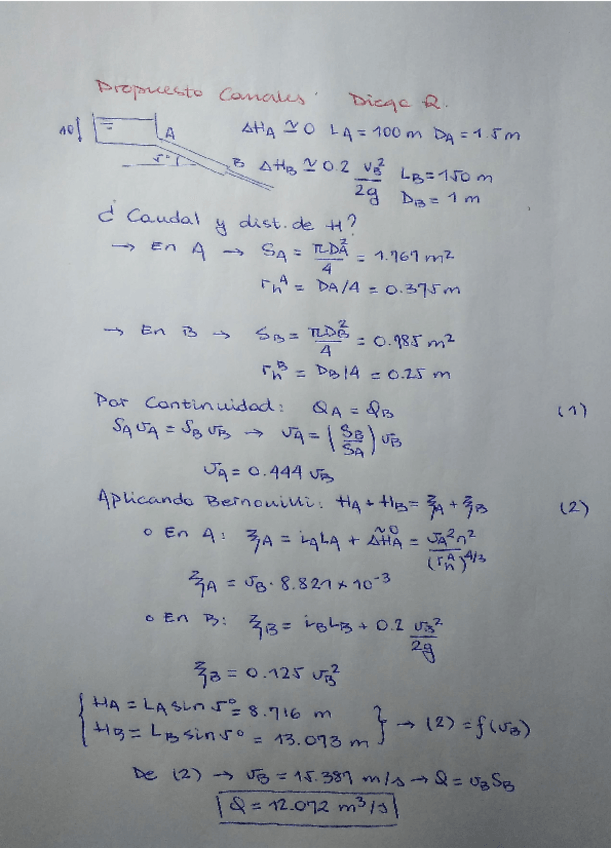 Propuesto Canales. Diego R.
10 A ΔHA ≃ 0 LA = 100 m DA = 1.5 m
5° B ΔHB ≃ 0.2 vB²/2g LB = 150 m
DB = 1 m
¿ Caudal y dist. de H?
→ En A → SA = πDA²/4 = 1.767 m²
rhA = DA/4 = 0.375 m
→ En B → SB = πDB²/4 = 0.785 m²
rhB = DB/4 = 0.25 m
Por Continuidad: QA = QB (1)
SA vA = SB vB → vA = (SB/SA) vB
vA = 0.444 vB
Aplicando Bernouilli: HA + HB = ξA + ξB (2)
o En A: ξA = iA LA + ΔHA ~0 = vA² n²/(rhA)^4/3
ξA = vB · 8.821 × 10⁻³
o En B: ξB = iB LB + 0.2 vB²/2g
ξB = 0.125 vB²
{ HA = LA sin 5° = 8.716 m
HB = LB sin 5° = 13.073 m } → (2) = f(vB)
De (2) → vB = 15.387 m/s → Q = vB SB
Q = 12.072 m³/s